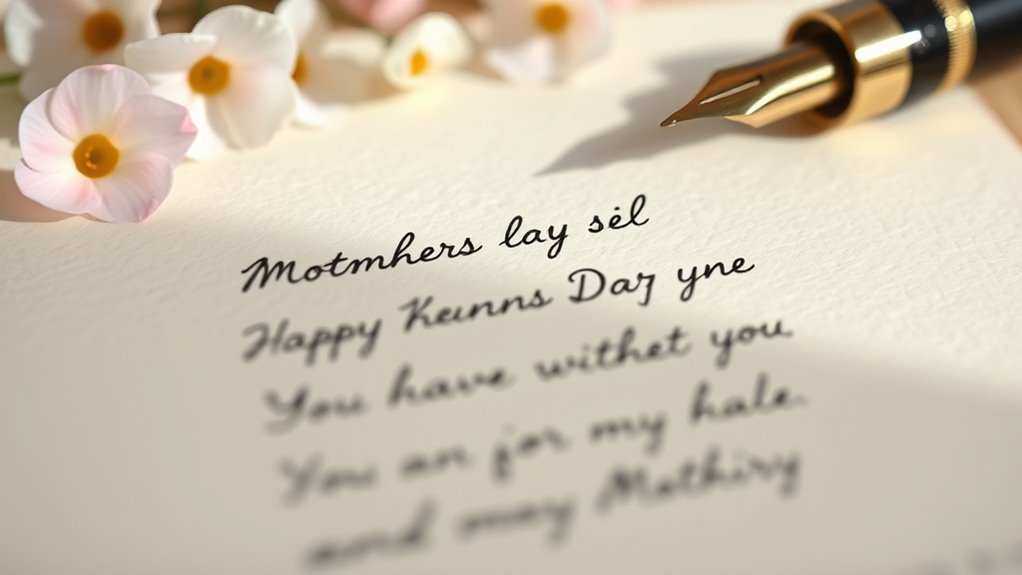 Motmhers lay sėl
Happy Keunns Daʒ yne
You have withet you
You an jor my hale.
and may Mothiry